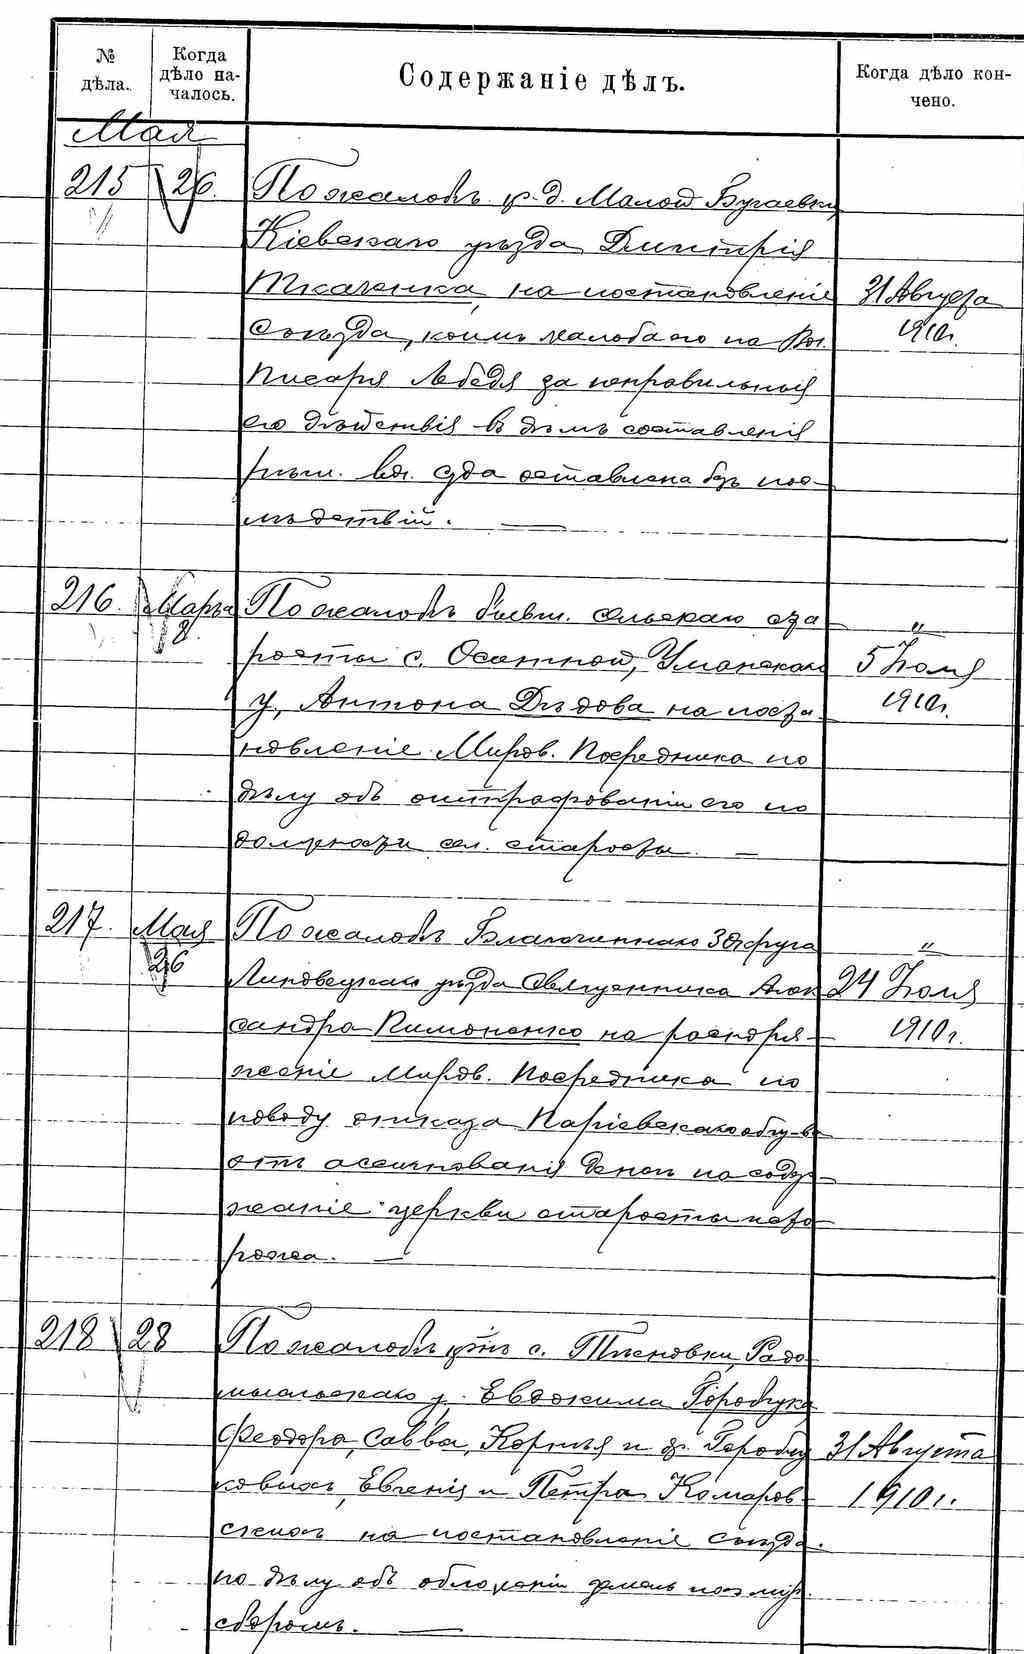 № дѣла.
Когда дѣло на-чалось.
Содержаніе дѣлъ.
Когда дѣло кон-чено.
Мая
215 26. По жалобѣ кр. д. Малой Бугаевки
Кіевскаго уѣзда Димитрія
Ткаченка, на постановленіе 31 Августа
съѣзда, коимъ жалоба его на Вол. 1910 г.
писаря Лебедя за неправильныя
его дѣйствія въ дѣлѣ составленія
рѣш. вол. суда оставлена безъ пос-
лѣдствій. —
216. Марта По жалобѣ бывш. сельскаго ста- "
8 росты с. Осотной, Уманскаго 5 Іюля
у., Антона Дѣдова на поста- 1910 г.
новленіе Миров. Посредника по
дѣлу объ оштрафованіи его по
должности сел. старосты. —
217. Мая По жалобѣ Благочиннаго 3 округа "
26 Липовецкаго уѣзда Священника Алек 24 Іюля
сандра Пимоненко на распоря- 1910 г.
женіе Миров. Посредника по
поводу отказа Паріевскаго общ-ва
отъ ассигнованія денегъ на содер-
жаніе церкви старосты
рожа. —
218 28 По жалобѣ кр-нъ с. Тѣсновки, Радо-
мысльскаго у. Евдокима Горобчука
Феодора, Савва, Корнія и др. Горобчу 31 Августа
ковыхъ, Евгенія и Петра Комаров- 1910 г.
скихъ на постановленіе съѣзда
по дѣлу объ обложеніи земель ихъ мір.
сборомъ. —